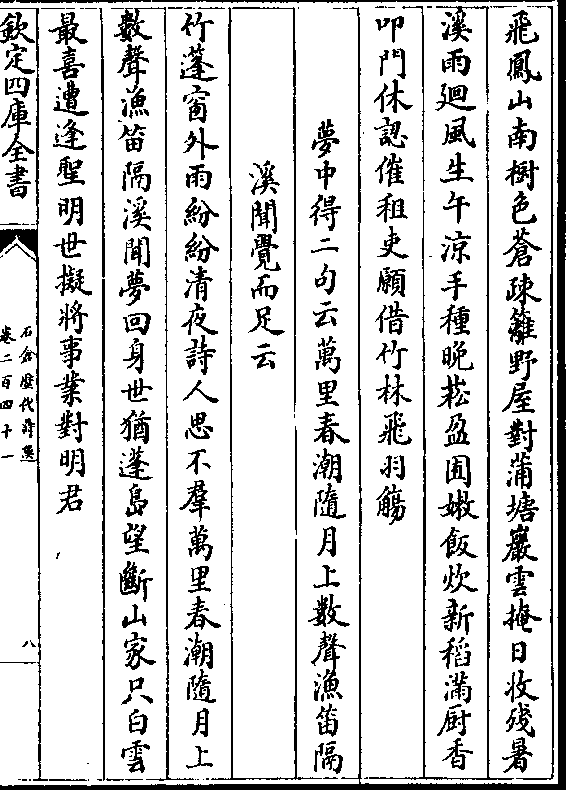 飛鳳山南樹色蒼疎籬野屋對蒲塘巖雲掩日收殘暑
溪雨廻風生午涼手種晚菘盈圃嫩飯炊新稻滿厨香
叩門休認催租吏願借竹林飛羽觴
夢中得二句云萬里春潮隨月上數聲漁笛隔
溪聞覺而足云
竹蓬窗外雨紛紛清夜詩人思不羣萬里春潮隨月上
數聲漁笛隔溪聞夢回身世猶蓬島望斷山家只白雲
最喜遭逢聖明世擬將事業對明君
欽定四庫全書
石倉歷代詩選
卷二百四十一
八